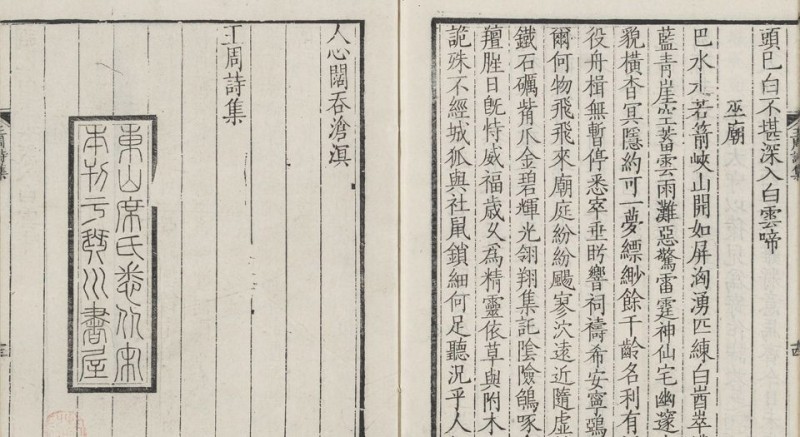 頭巳白不堪深入白雲啼
巫廟
巴水走若箭峽山開如屏洶湧匹練白崷崒
藍青崖空蓄雲雨灘惡驚雷霆神仙宅幽邃
貌橫杳冥隱約可一夢縹緲餘千齡名利有
役舟楫無暫停悉窣垂肹響祠禱希安寧鵶
爾何物飛飛來廟庭紛紛颺寥泬遠近隨虛
鐵石礪觜爪金碧輝光翎翔集託陰險鵮啄
羶腥日旣恃威福歲久爲精靈依草與附木
詭殊不經城狐與社鼠鎖細何足聽況乎人
人心闊吞滄溟
王周詩集
東山席氏悉從宋
本刊于琴川書屋